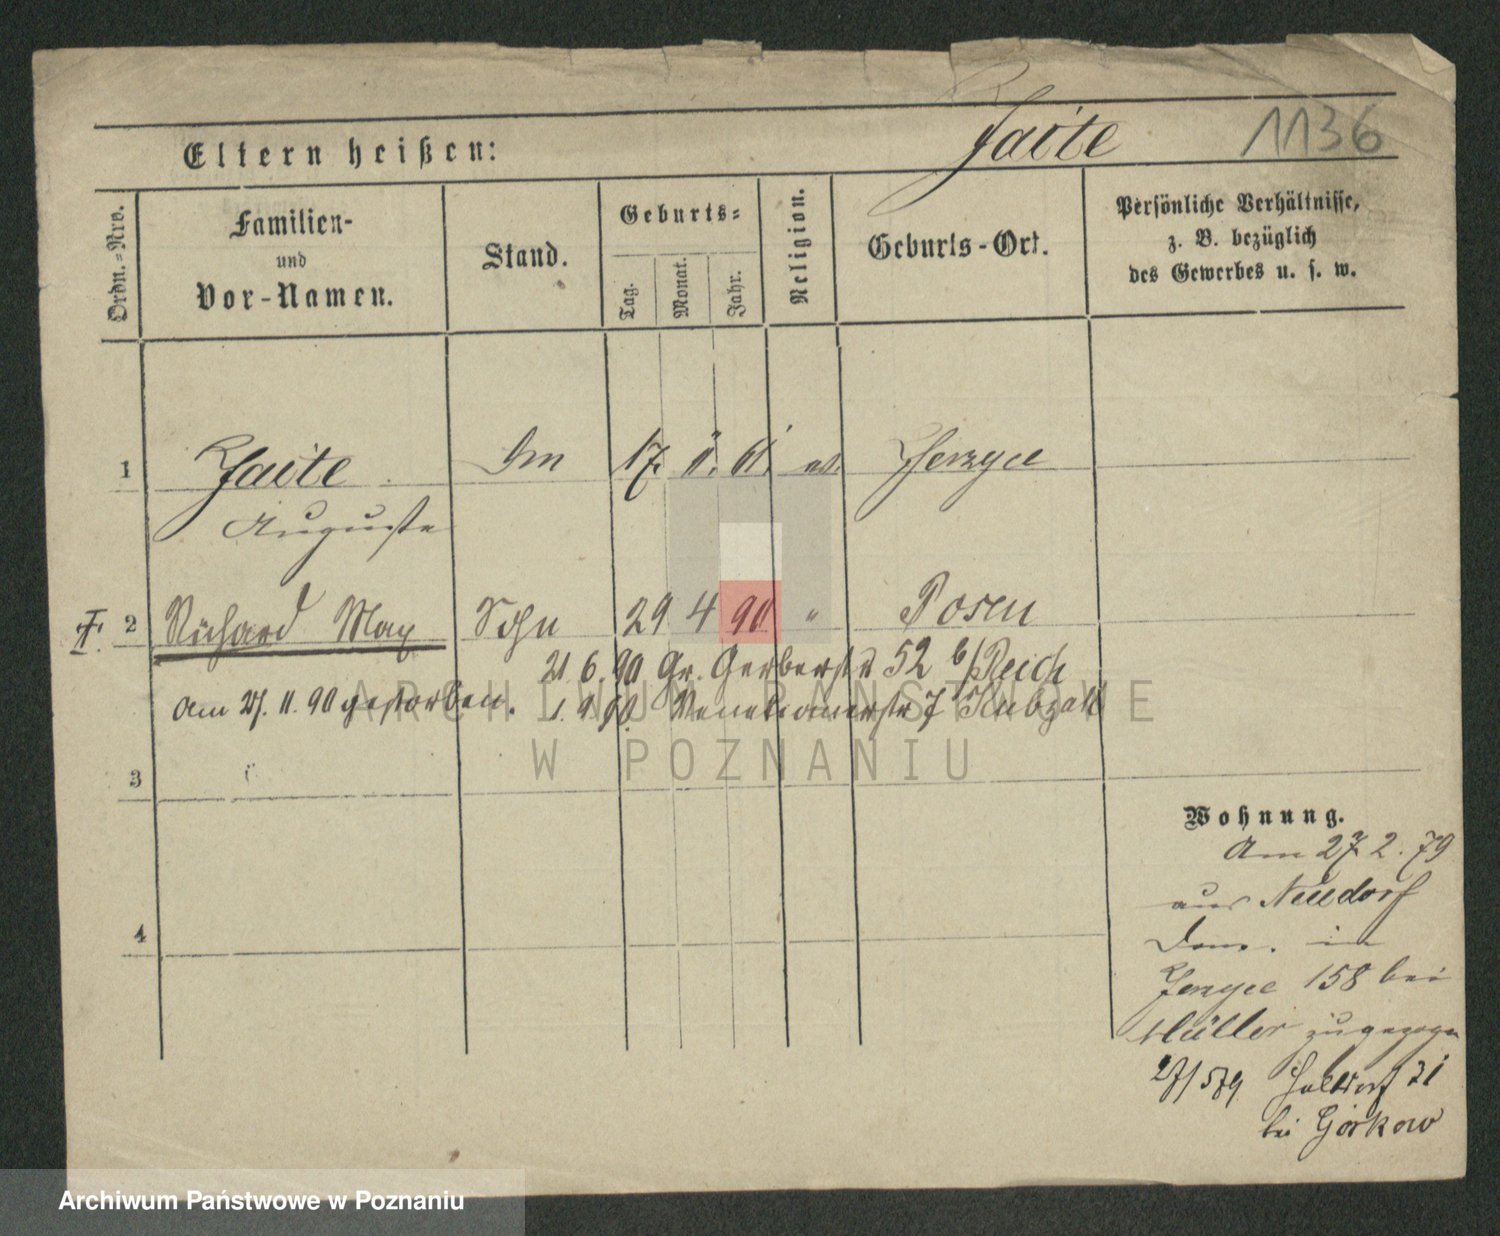 Jaite 1136
Eltern heißen:
Ordn.-Nro.
Familien-
und
Vor-Namen.
Stand.
Geburts-
Tag.
Monat.
Jahr.
Religion.
Geburts-Ort.
Persönliche Verhältnisse,
z. B. bezüglich
des Gewerbes u. s. w.
1 Jaite 17. 11. 61. ev. Jerzyce
Auguste
2 Richard Max Sohn 29 4 90 " Posen
21.6.90 Gr. Gerberstr 52 b/Reich
am 27. 11. 90 gestorben. 1. 9. 90 Venetianerstr 7
3
4
Wohnung.
Am 27. 2. 79
aus Neudorf
Dom. in
Jerzyce 158 bei
Müller zugezogen
27/5 79 31
bei Gorkow
ARCHIWUM PAŃSTWOWE
W POZNANIU
Archiwum Państwowe w Poznaniu